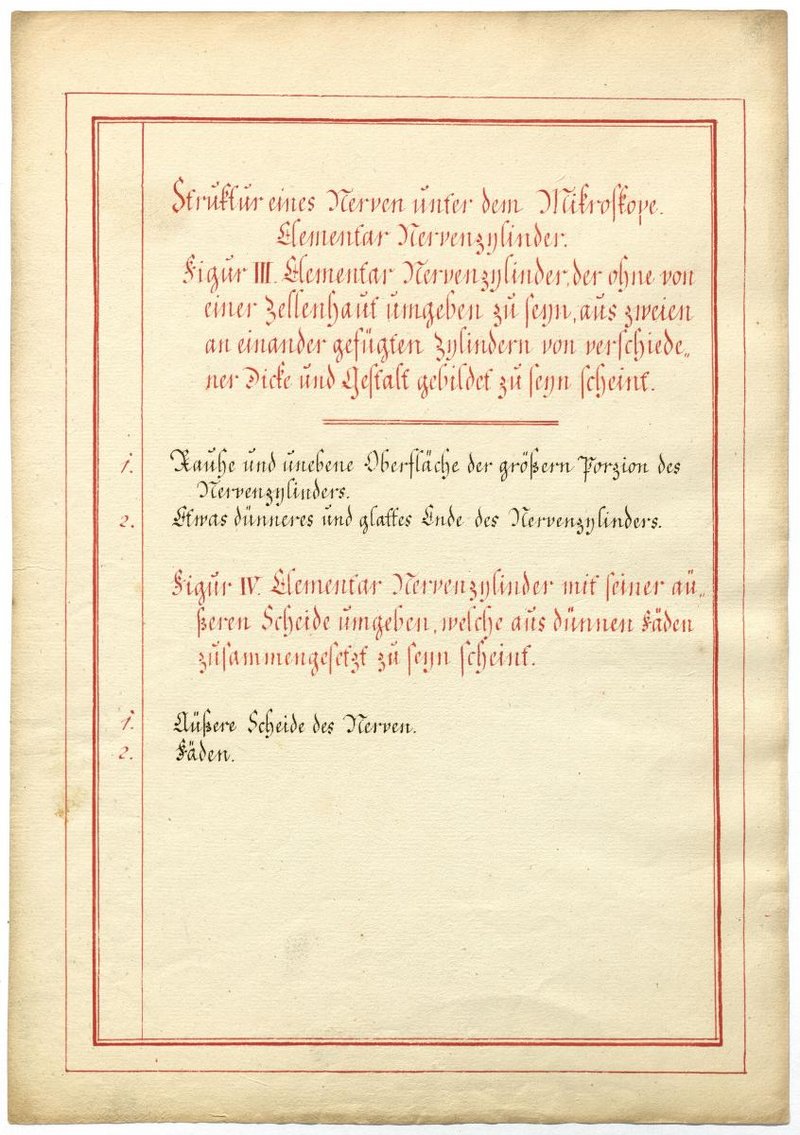 Struktur eines Nerven unter dem Mikroskope.
Elementar Nervenzylinder.
Figur III. Elementar Nervenzylinder, der ohne von
einer Zellenhaut umgeben zu seyn, aus zweien
an einander gefügten Zylindern von verschiede„
ner Dicke und Gestalt gebildet zu seyn scheint.
1. Rauhe und unebene Oberfläche der größern Porzion des
Nervenzylinders.
2. Etwas dünneres und glattes Ende des Nervenzylinders.
Figur IV. Elementar Nervenzylinder mit seiner äu„
ßeren Scheide umgeben, welche aus dünnen Fäden
zusammengesetzt zu seyn scheint.
1. Äußere Scheide des Nerven.
2. Fäden.